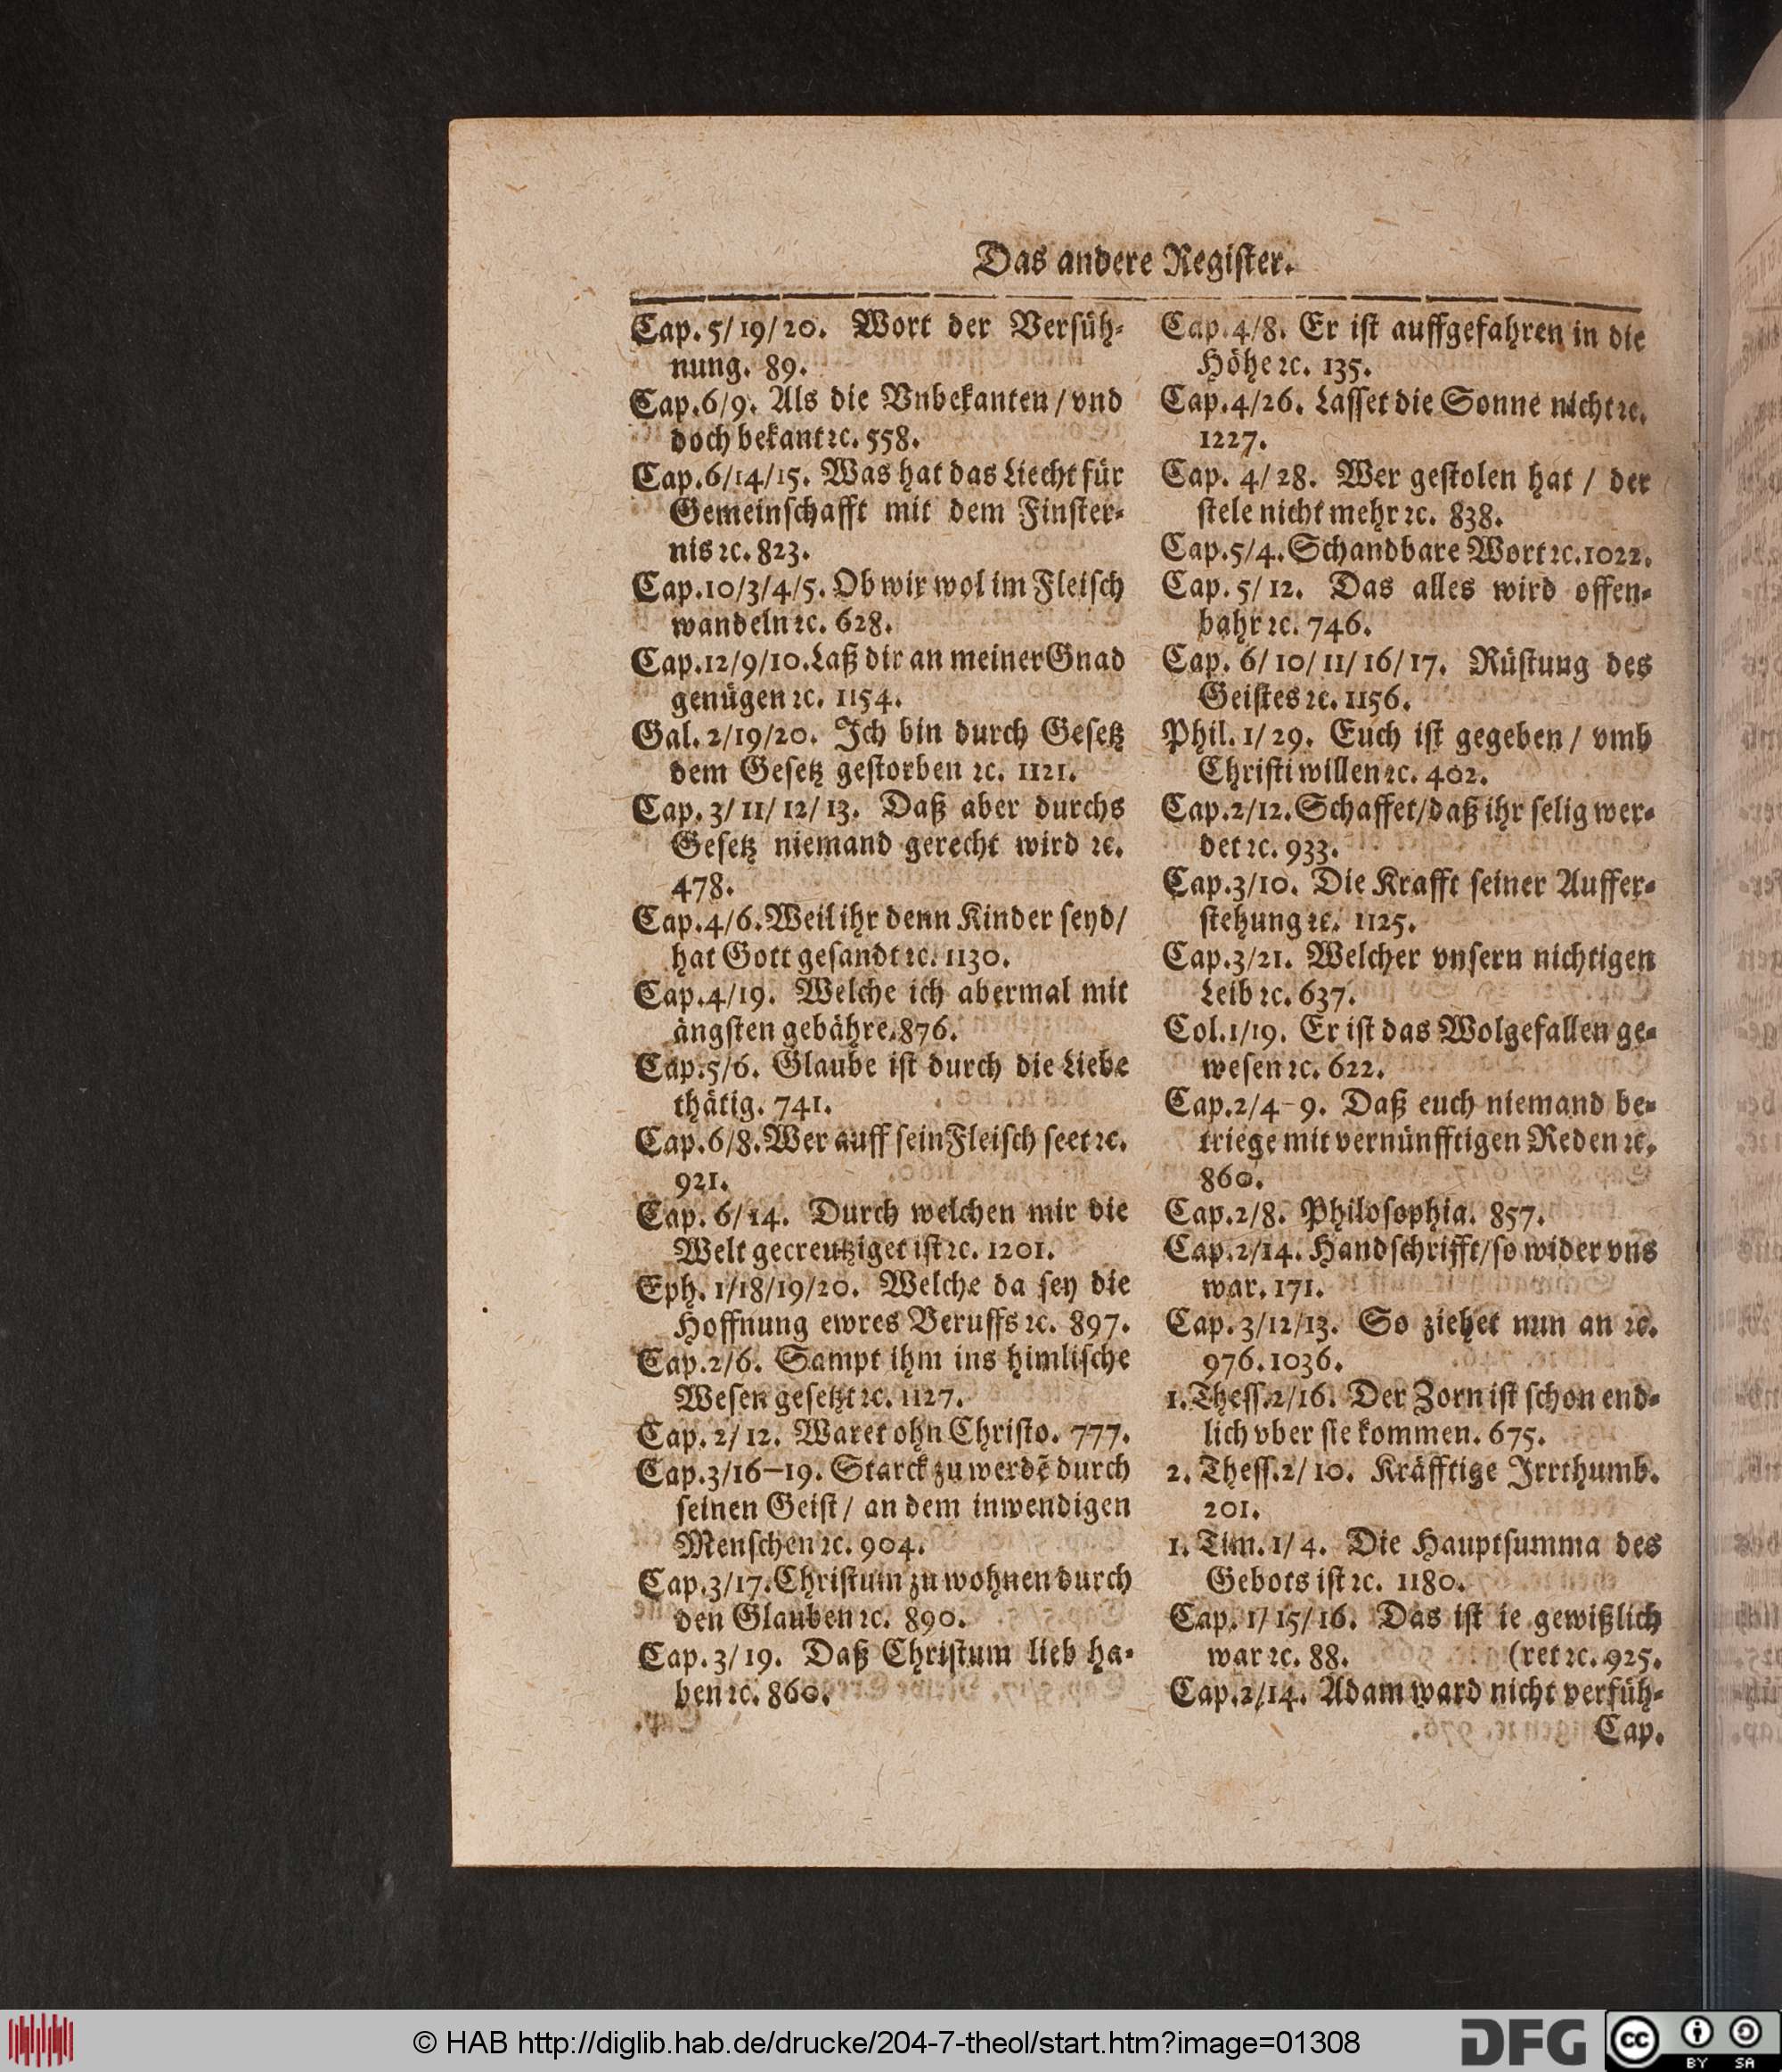 Das andere Register.
Cap. 5/19/20. Wort der Versüh-
nung. 89.
Cap. 6/9. Als die Vnbekanten/vnd
doch bekant ꝛc. 558.
Cap. 6/14/15. Was hat das Liecht für
Gemeinschafft mit dem Finster-
nis ꝛc. 823.
Cap. 10/3/4/5. Ob wir wol im Fleisch
wandeln ꝛc. 628.
Cap. 12/9/10. Laß dir an meiner Gnad
genügen ꝛc. 1154.
Gal. 2/19/20. Ich bin durch Gesetz
dem Gesetz gestorben ꝛc. 1121.
Cap. 3/11/12/13. Daß aber durchs
Gesetz niemand gerecht wird ꝛc.
478.
Cap. 4/6. Weil ihr denn Kinder seyd/
hat Gott gesandt ꝛc. 1130.
Cap. 4/19. Welche ich abermal mit
ängsten gebähre. 876.
Cap. 5/6. Glaube ist durch die Liebe
thätig. 741.
Cap. 6/8. Wer auff sein Fleisch seet ꝛc.
921.
Cap. 6/14. Durch welchen mir die
Welt gecreutziget ist ꝛc. 1201.
Eph. 1/18/19/20. Welche da sey die
Hoffnung ewres Beruffs ꝛc. 897.
Cap. 2/6. Sampt ihm ins himlische
Wesen gesetzt ꝛc. 1127.
Cap. 2/12. Waret ohn Christo. 777.
Cap. 3/16–19. Starck zu werdẽ durch
seinen Geist/ an dem inwendigen
Menschen ꝛc. 904.
Cap. 3/17. Christum zu wohnen durch
den Glauben ꝛc. 890.
Cap. 3/19. Daß Christum lieb ha-
ben ꝛc. 860.
Cap. 4/8. Er ist auffgefahren in die
Höhe ꝛc. 135.
Cap. 4/26. Lasset die Sonne nicht ꝛc.
1227.
Cap. 4/28. Wer gestolen hat / der
stele nicht mehr ꝛc. 838.
Cap. 5/4. Schandbare Wort ꝛc. 1022.
Cap. 5/12. Das alles wird offen-
bahr ꝛc. 746.
Cap. 6/10/11/16/17. Rüstung des
Geistes ꝛc. 1156.
Phil. 1/29. Euch ist gegeben/ vmb
Christi willen ꝛc. 402.
Cap. 2/12. Schaffet/daß ihr selig wer-
det ꝛc. 933.
Cap. 3/10. Die Krafft seiner Auffer-
stehung ꝛc. 1125.
Cap. 3/21. Welcher vnsern nichtigen
Leib ꝛc. 637.
Col. 1/19. Er ist das Wolgefallen ge-
wesen ꝛc. 622.
Cap. 2/4–9. Daß euch niemand be-
triege mit vernünfftigen Reden ꝛc.
860.
Cap. 2/8. Philosophia. 857.
Cap. 2/14. Handschrifft/so wider vns
war. 171.
Cap. 3/12/13. So ziehet nun an ꝛc.
976. 1036.
1. Thess. 2/16. Der Zorn ist schon end-
lich vber sie kommen. 675.
2. Thess. 2/10. Kräfftige Irrthumb.
201.
1. Tim. 1/4. Die Hauptsumma des
Gebots ist ꝛc. 1180.
Cap. 1/15/16. Das ist ie gewißlich
war ꝛc. 88. (ret ꝛc. 925.
Cap. 2/14. Adam ward nicht verfüh-
Cap.
© HAB http://diglib.hab.de/drucke/204-7-theol/start.htm?image=01308
DFG
cc BY SA